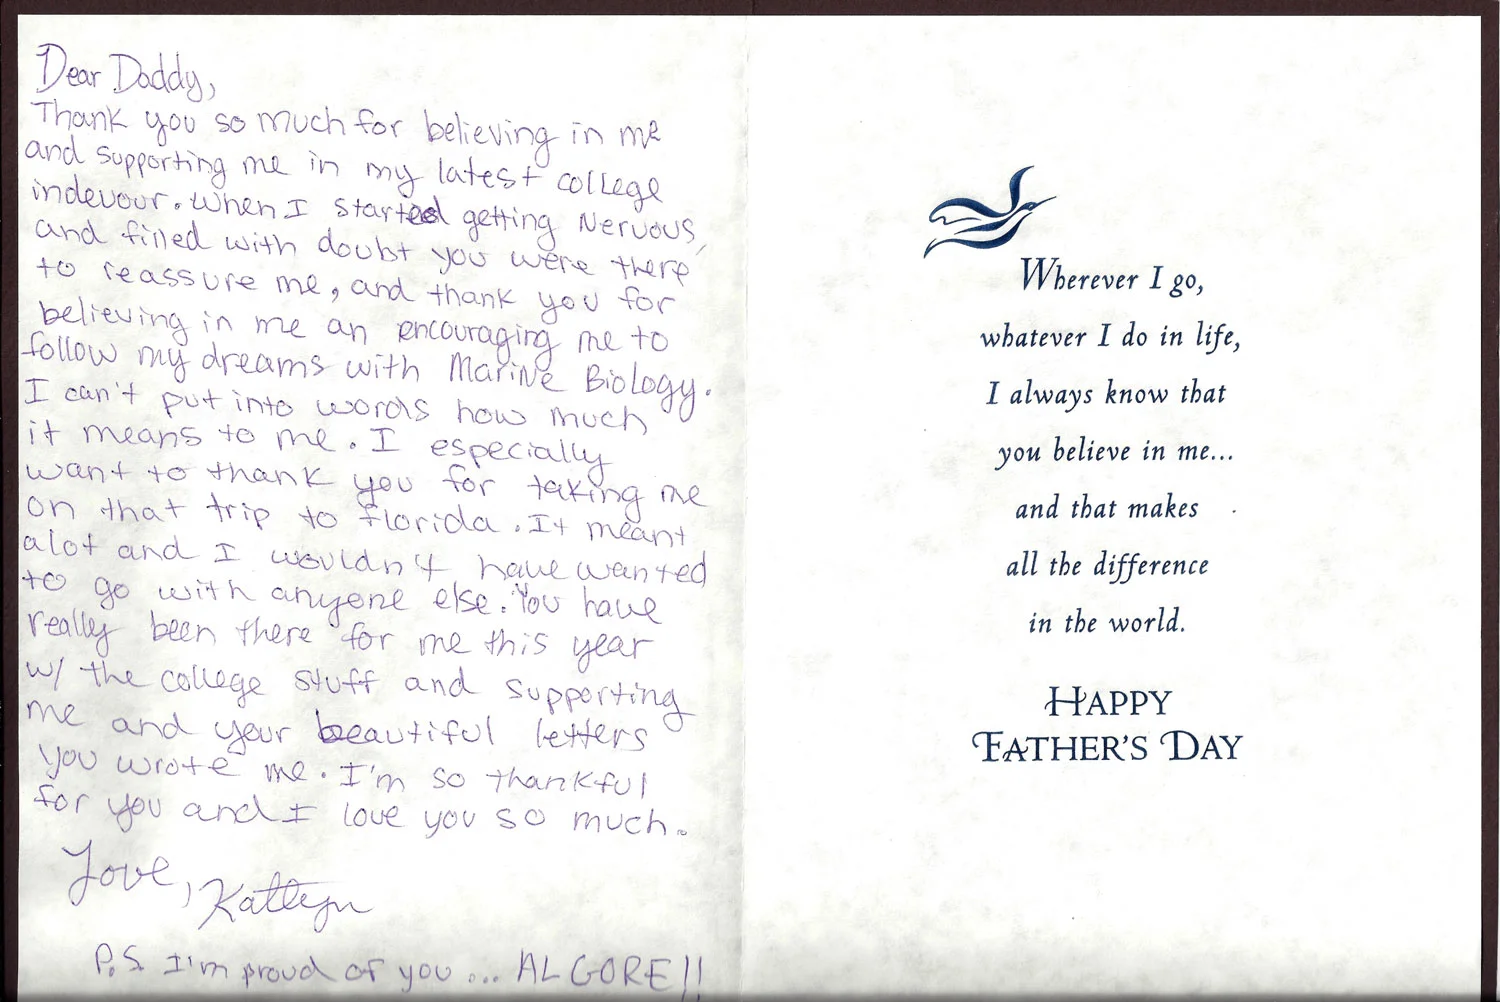 Dear Daddy,
Thank you so much for believing in me
and supporting me in my latest college
indevour. When I started getting Nervous,
and filled with doubt you were there
to reassure me, and thank you for
believing in me an encouraging me to
follow my dreams with Marine Biology.
I can't put into words how much
it means to me. I especially
want to thank you for taking me
on that trip to Florida. It meant
alot and I wouldn't have wanted
to go with anyone else. You have
really been there for me this year
w/ the college stuff and supporting
me and your beautiful letters
you wrote me. I'm so thankful
for you and I love you so much.
Love, Katlyn
P.S. I'm proud of you... AL GORE!!
Wherever I go,
whatever I do in life,
I always know that
you believe in me...
and that makes
all the difference
in the world.
HAPPY
FATHER'S DAY